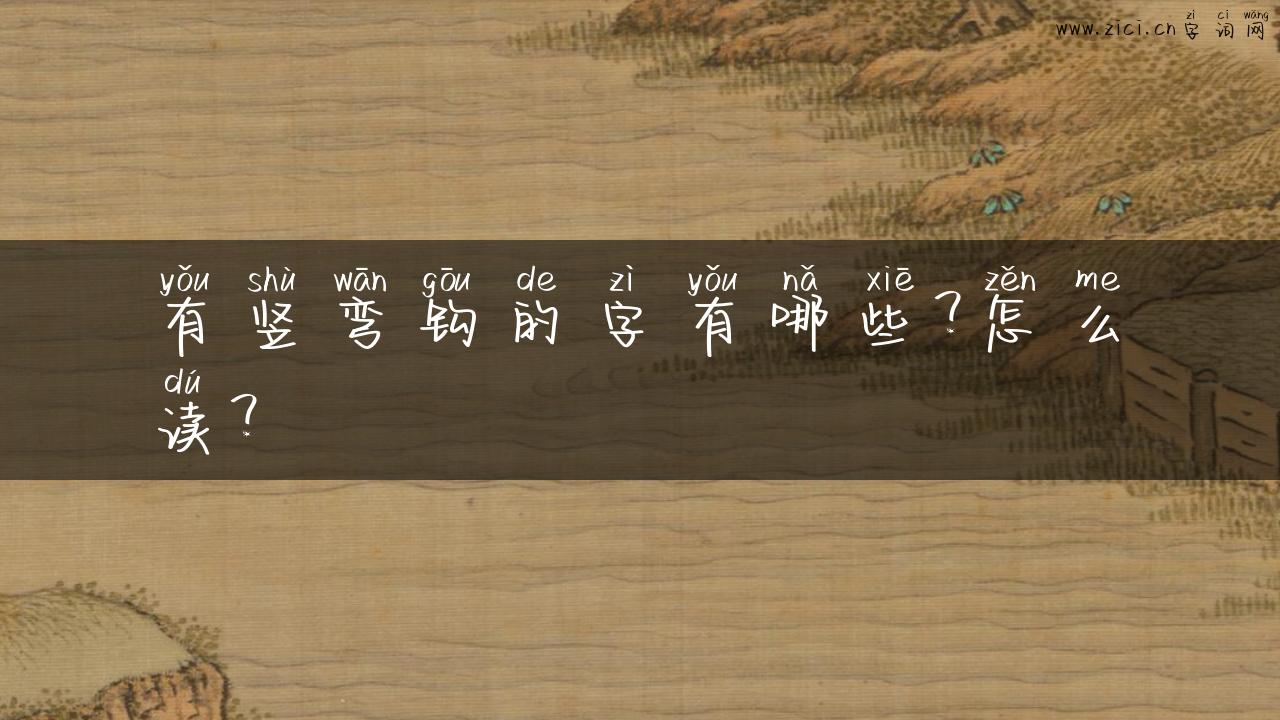 zì cí wǎng
www.zici.cn字词网
yǒu shù wān gōu de zì yǒu nǎ xiē zěn me
有竖弯钩的字有哪些？怎么
dú
读？